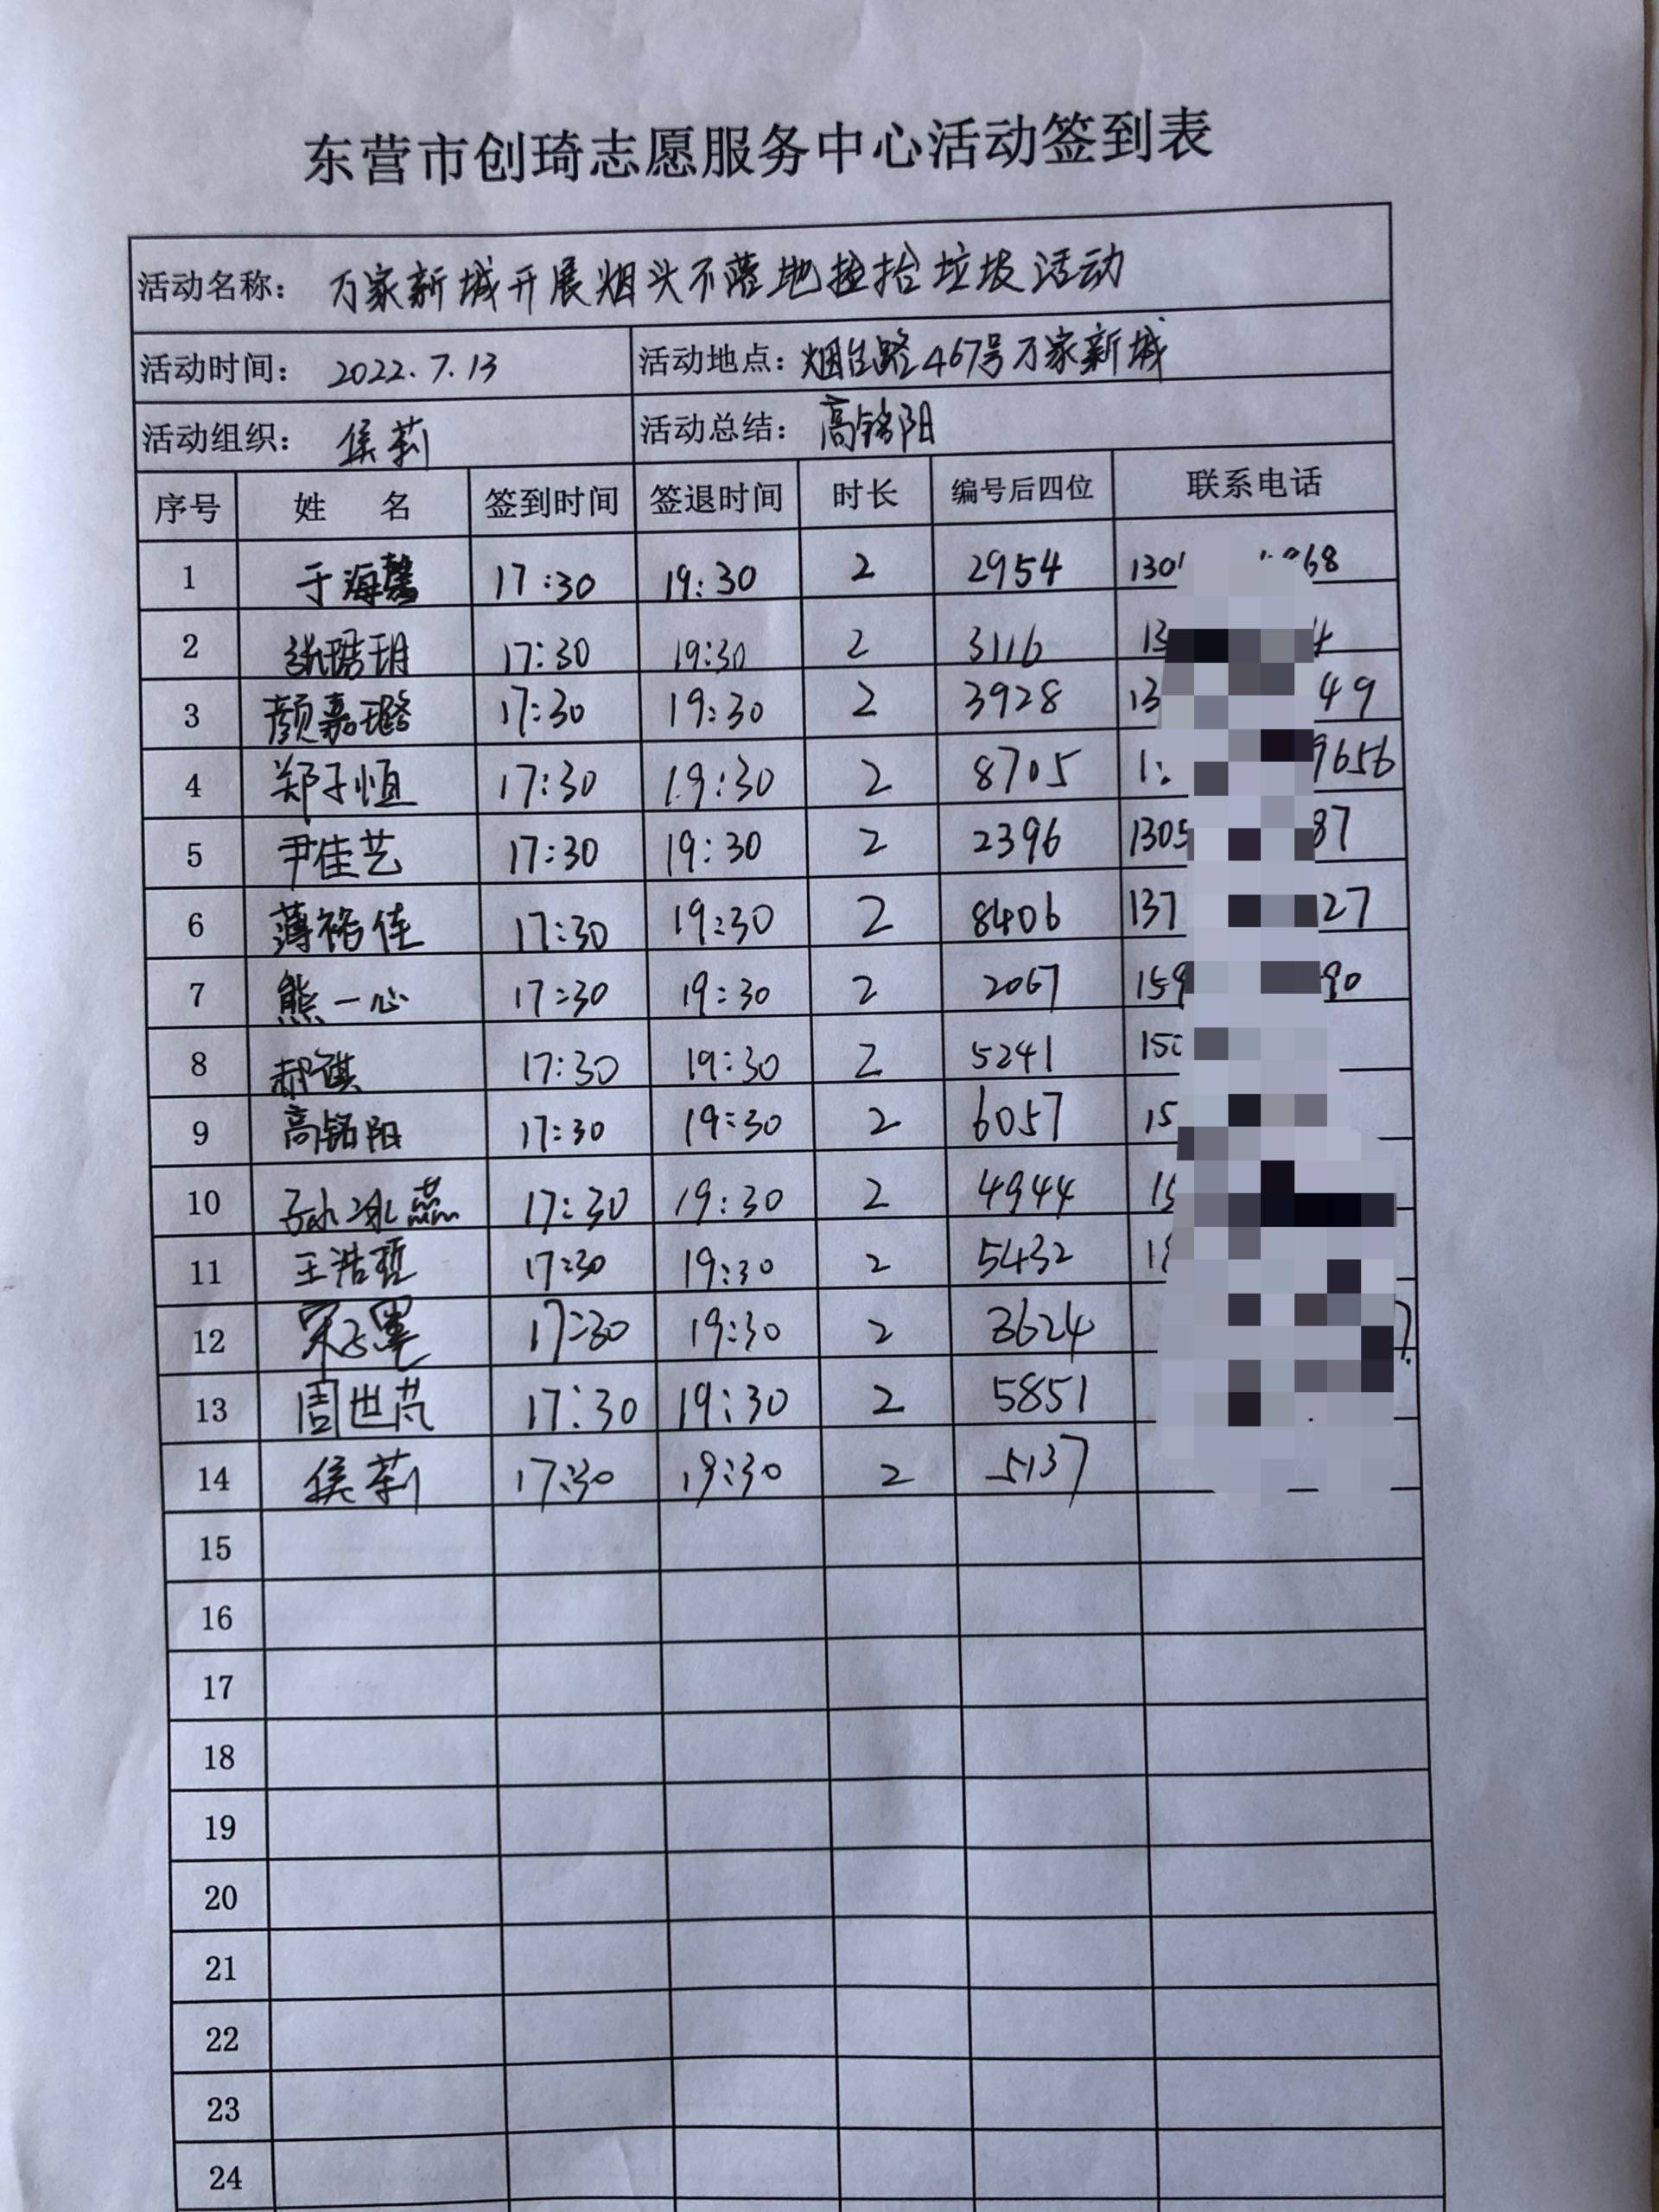 东营市创琦志愿服务中心活动签到表
活动名称： 万家新城开展烟头不落地捡拾垃圾活动
活动时间： 2022.7.13 活动地点： 烟台路467号万家新城
活动组织： 侯莉 活动总结： 高铭阳
序号 姓 名 签到时间 签退时间 时长 编号后四位 联系电话
1 于海馨 17:30 19:30 2 2954 130 68
2 17:30 19:30 2 3116 13 4
3 颜嘉璐 17:30 19:30 2 3928 13 49
4 郑子恒 17:30 19:30 2 8705 1 9656
5 尹佳艺 17:30 19:30 2 2396 1305 87
6 薄裕佳 17:30 19:30 2 8406 137 27
7 熊一心 17:30 19:30 2 2067 159 90
8 郝祺 17:30 19:30 2 5241 15
9 高铭阳 17:30 19:30 2 6057 15
10 孙冰燕 17:30 19:30 2 4944 15
11 王浩哲 17:30 19:30 2 5432 1
12 17:30 19:30 2 3624
13 周世芃 17:30 19:30 2 5851
14 侯莉 17:30 19:30 2 5137
15
16
17
18
19
20
21
22
23
24